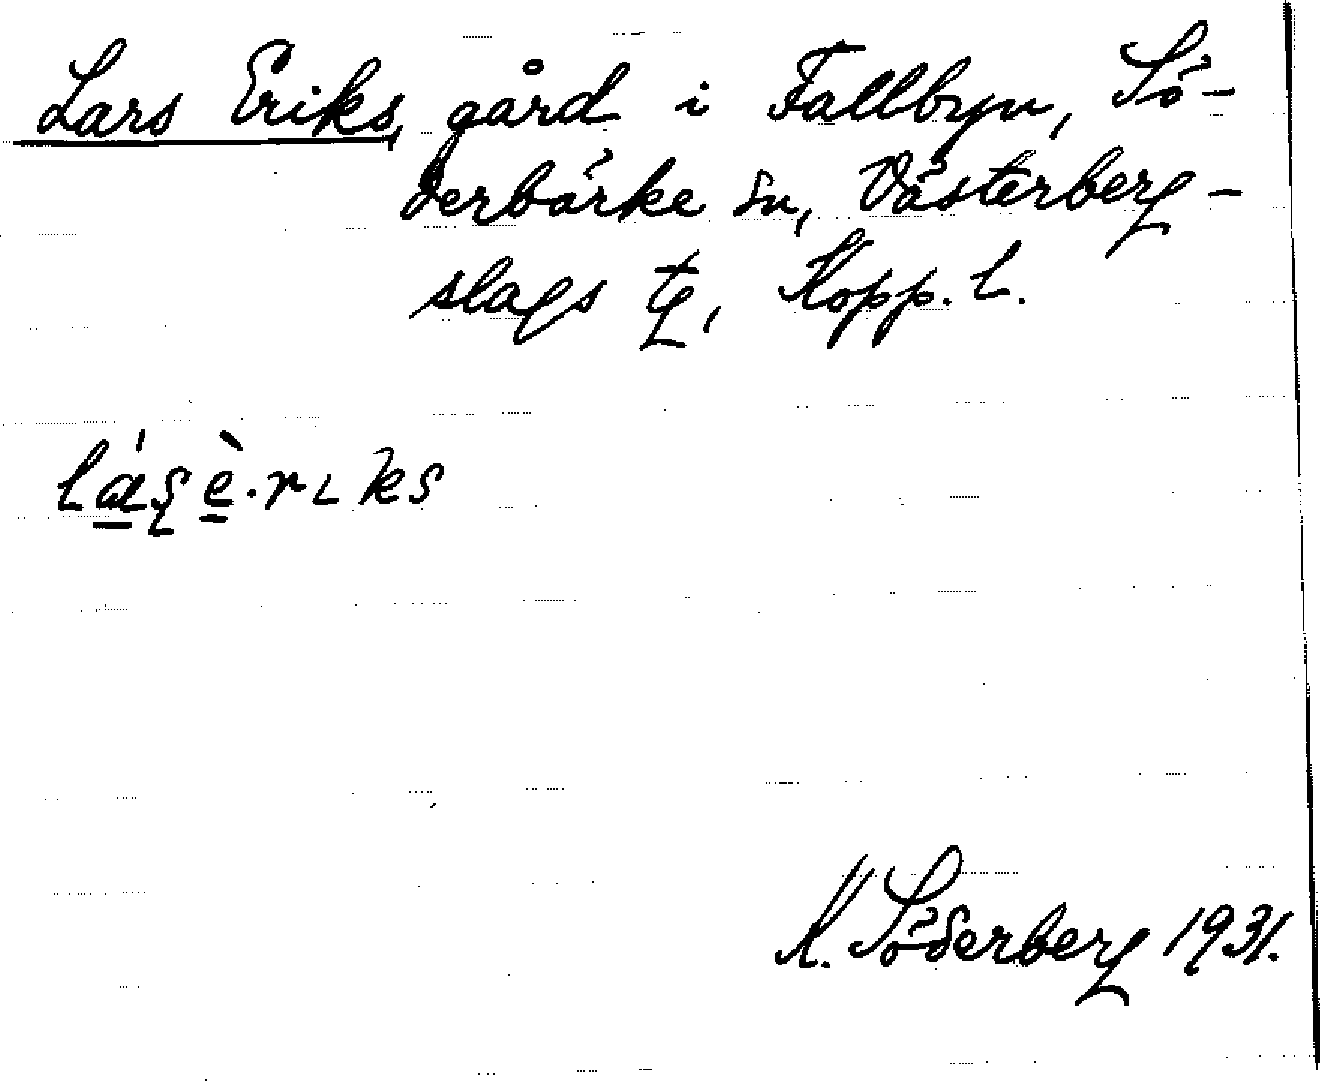 Lars Eriks, gård i Fallbyn, Sö-
derbärke sn, Västerberg-
slags tg, Kopp. l.
K. Söderberg 1931.